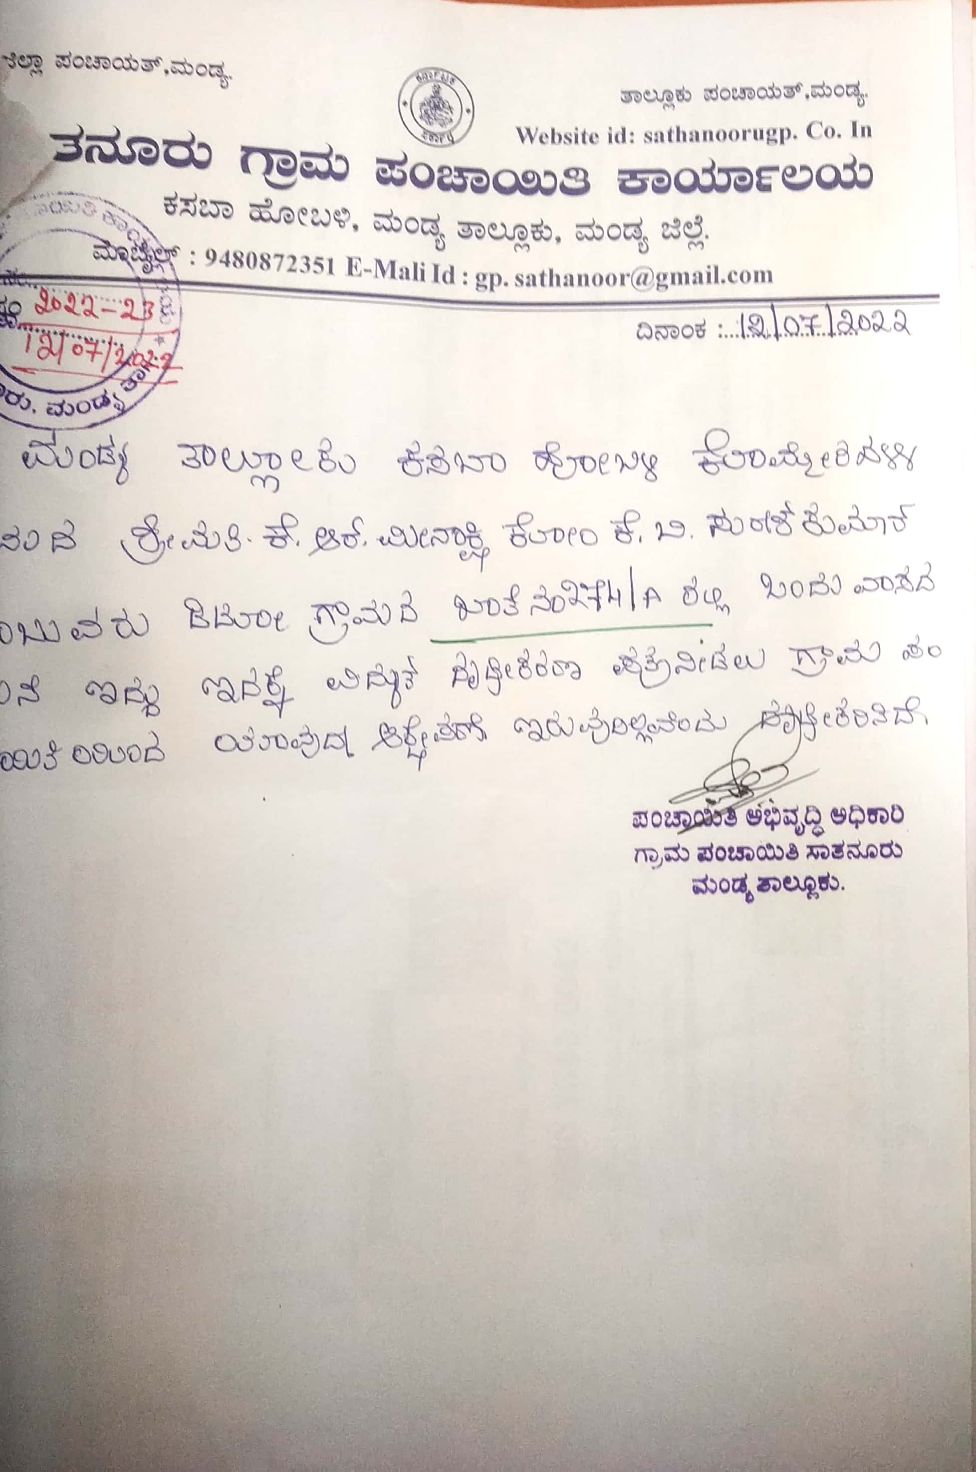 ಜಿಲ್ಲಾ ಪಂಚಾಯತ್,ಮಂಡ್ಯ.
ತಾಲ್ಲೂಕು ಪಂಚಾಯತ್,ಮಂಡ್ಯ.
Website id: sathanoorugp. Co. In
ತನೂರು ಗ್ರಾಮ ಪಂಚಾಯಿತಿ ಕಾರ್ಯಾಲಯ
ಕಸಬಾ ಹೋಬಳಿ, ಮಂಡ್ಯ ತಾಲ್ಲೂಕು, ಮಂಡ್ಯ ಜಿಲ್ಲೆ.
ಮೊಬೈಲ್ : 9480872351 E-Mali Id : gp. sathanoor@gmail.com
2022-23
12/07/2022
ರು. ಮಂಡ್ಯ ತಾ
ದಿನಾಂಕ : 12/07/2022
ಮಂಡ್ಯ ತಾಲ್ಲೂಕು ಕಸಬಾ ಹೋಬಳಿ
ಶ್ರೀಮತಿ. ಕೆ. ಆರ್. ಮೀನಾಕ್ಷಿ ಕೋಂ ಕೆ. ಬಿ. ಸುರೇಶ್ ಕುಮಾರ್
ಂಬುವರು ಗ್ರಾಮದ ಖಾತೆ ನಂ274/A ರಲ್ಲಿ ಒಂದು ವಾಸದ
ನೆ ಇದ್ದು ಇದಕ್ಕೆ ವಿದ್ಯುತ್ ದೃಢೀಕರಣ ಪತ್ರನೀಡಲು ಗ್ರಾಮ ಪಂ
ಯಿತಿಯಿಂದ ಯಾವುದೇ ಆಕ್ಷೇಪಣೆ ಇರುವುದಿಲ್ಲವೆಂದು ದೃಢೀಕರಿಸಿದೆ
ಪಂಚಾಯಿತಿ ಅಭಿವೃದ್ಧಿ ಅಧಿಕಾರಿ
ಗ್ರಾಮ ಪಂಚಾಯಿತಿ ಸಾತನೂರು
ಮಂಡ್ಯ ತಾಲ್ಲೂಕು.